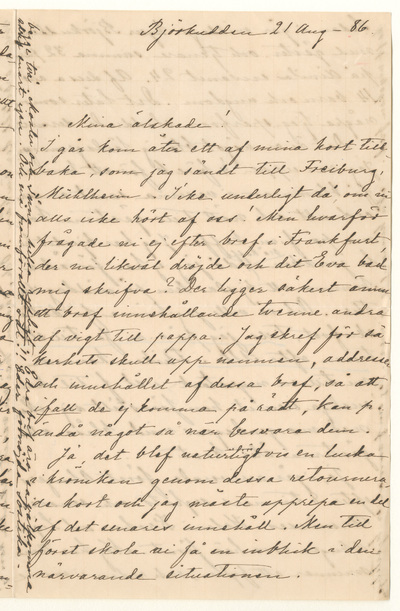 Björkudden 21 Aug - 86
Mina älskade!
I går kom åter ett af mina kort till-
baka, som jag sändt till Freiburg,
Mühlheim. Icke underligt då om ni
alls icke hört af oss. Men hvarför
frågade ni ej efter bref i Frankfurt,
der ni likväl dröjde och dit Eva bad
mig skrifva? Der ligger säkert ännu
ett bref innehållande tvenne andra
af vigt till pappa. Jag skref för sä-
kerhets skull upp namnen, addresser
och innehållet af dessa bref, så att
ifall de ej komma på rätt, kan p.
ändå något så när besvara dem.
Ja, det blef naturligtvis en lucka
i krönikan genom dessa retournera-
de kort och jag måste upprepa en del
af det senares innehåll. Men till
först skola ni få en inblick i den
närvarande situationen.